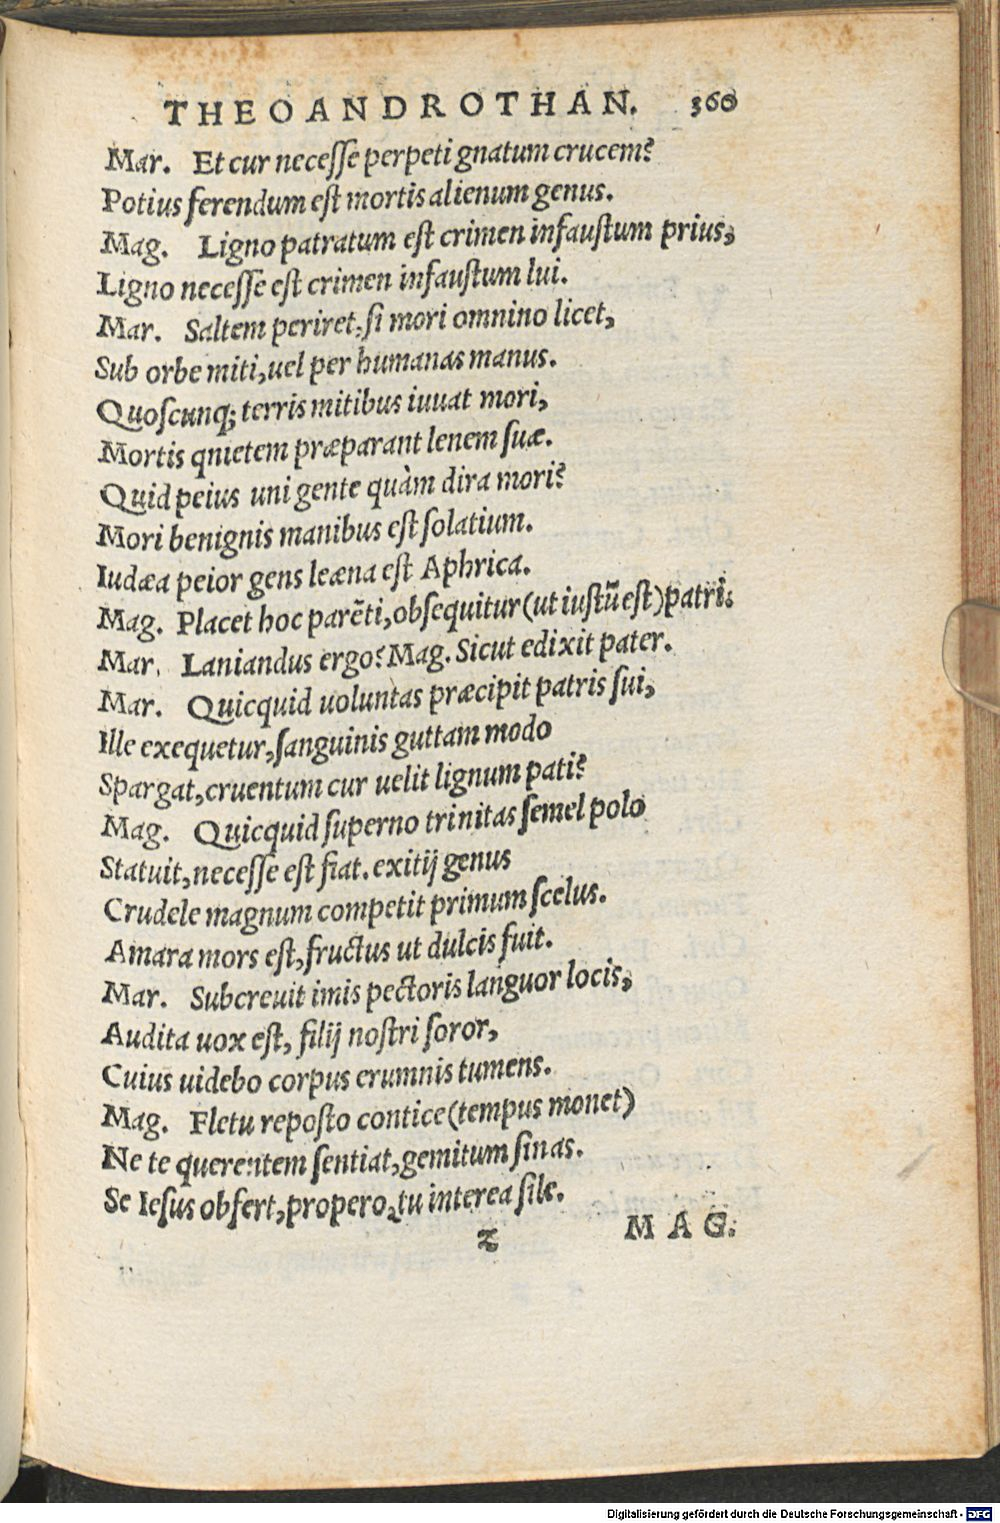 THEOANDROTHAN. 360
Mar. Et cur necesse perpeti gnatum crucem?
Potius ferendum est mortis alienum genus.
Mag. Ligno patratum est crimen infaustum prius,
Ligno necesse est crimen infaustum lui.
Mar. Saltem periret, si mori omnino licet,
Sub orbe miti, uel per humanas manus.
Quoscunq; terris mitibus iuuat mori,
Mortis qnietem præparant lenem suæ.
Quid peius uni gente quàm dira mori?
Mori benignis manibus est solatium.
Iudæa peior gens leæna est Aphrica.
Mag. Placet hoc parẽti, obsequitur (ut iustũ est) patri.
Mar. Laniandus ergo? Mag. Sicut edixit pater.
Mar. Quicquid uoluntas præcipit patris sui,
Ille exequetur, sanguinis guttam modo
Spargat, cruentum cur uelit lignum pati?
Mag. Quicquid superno trinitas semel polo
Statuit, necesse est fiat. exitij genus
Crudele magnum competit primum scelus.
Amara mors est, fructus ut dulcis fuit.
Mar. Subcreuit imis pectoris languor locis,
Audita uox est, filij nostri soror,
Cuius uidebo corpus erumnis tumens.
Mag. Fletu reposto contice (tempus monet)
Ne te querentem sentiat, gemitum sinas.
Se Iesus obfert, propero, tu interea sile.
z MAG.
Digitalisierung gefördert durch die Deutsche Forschungsgemeinschaft - DFG